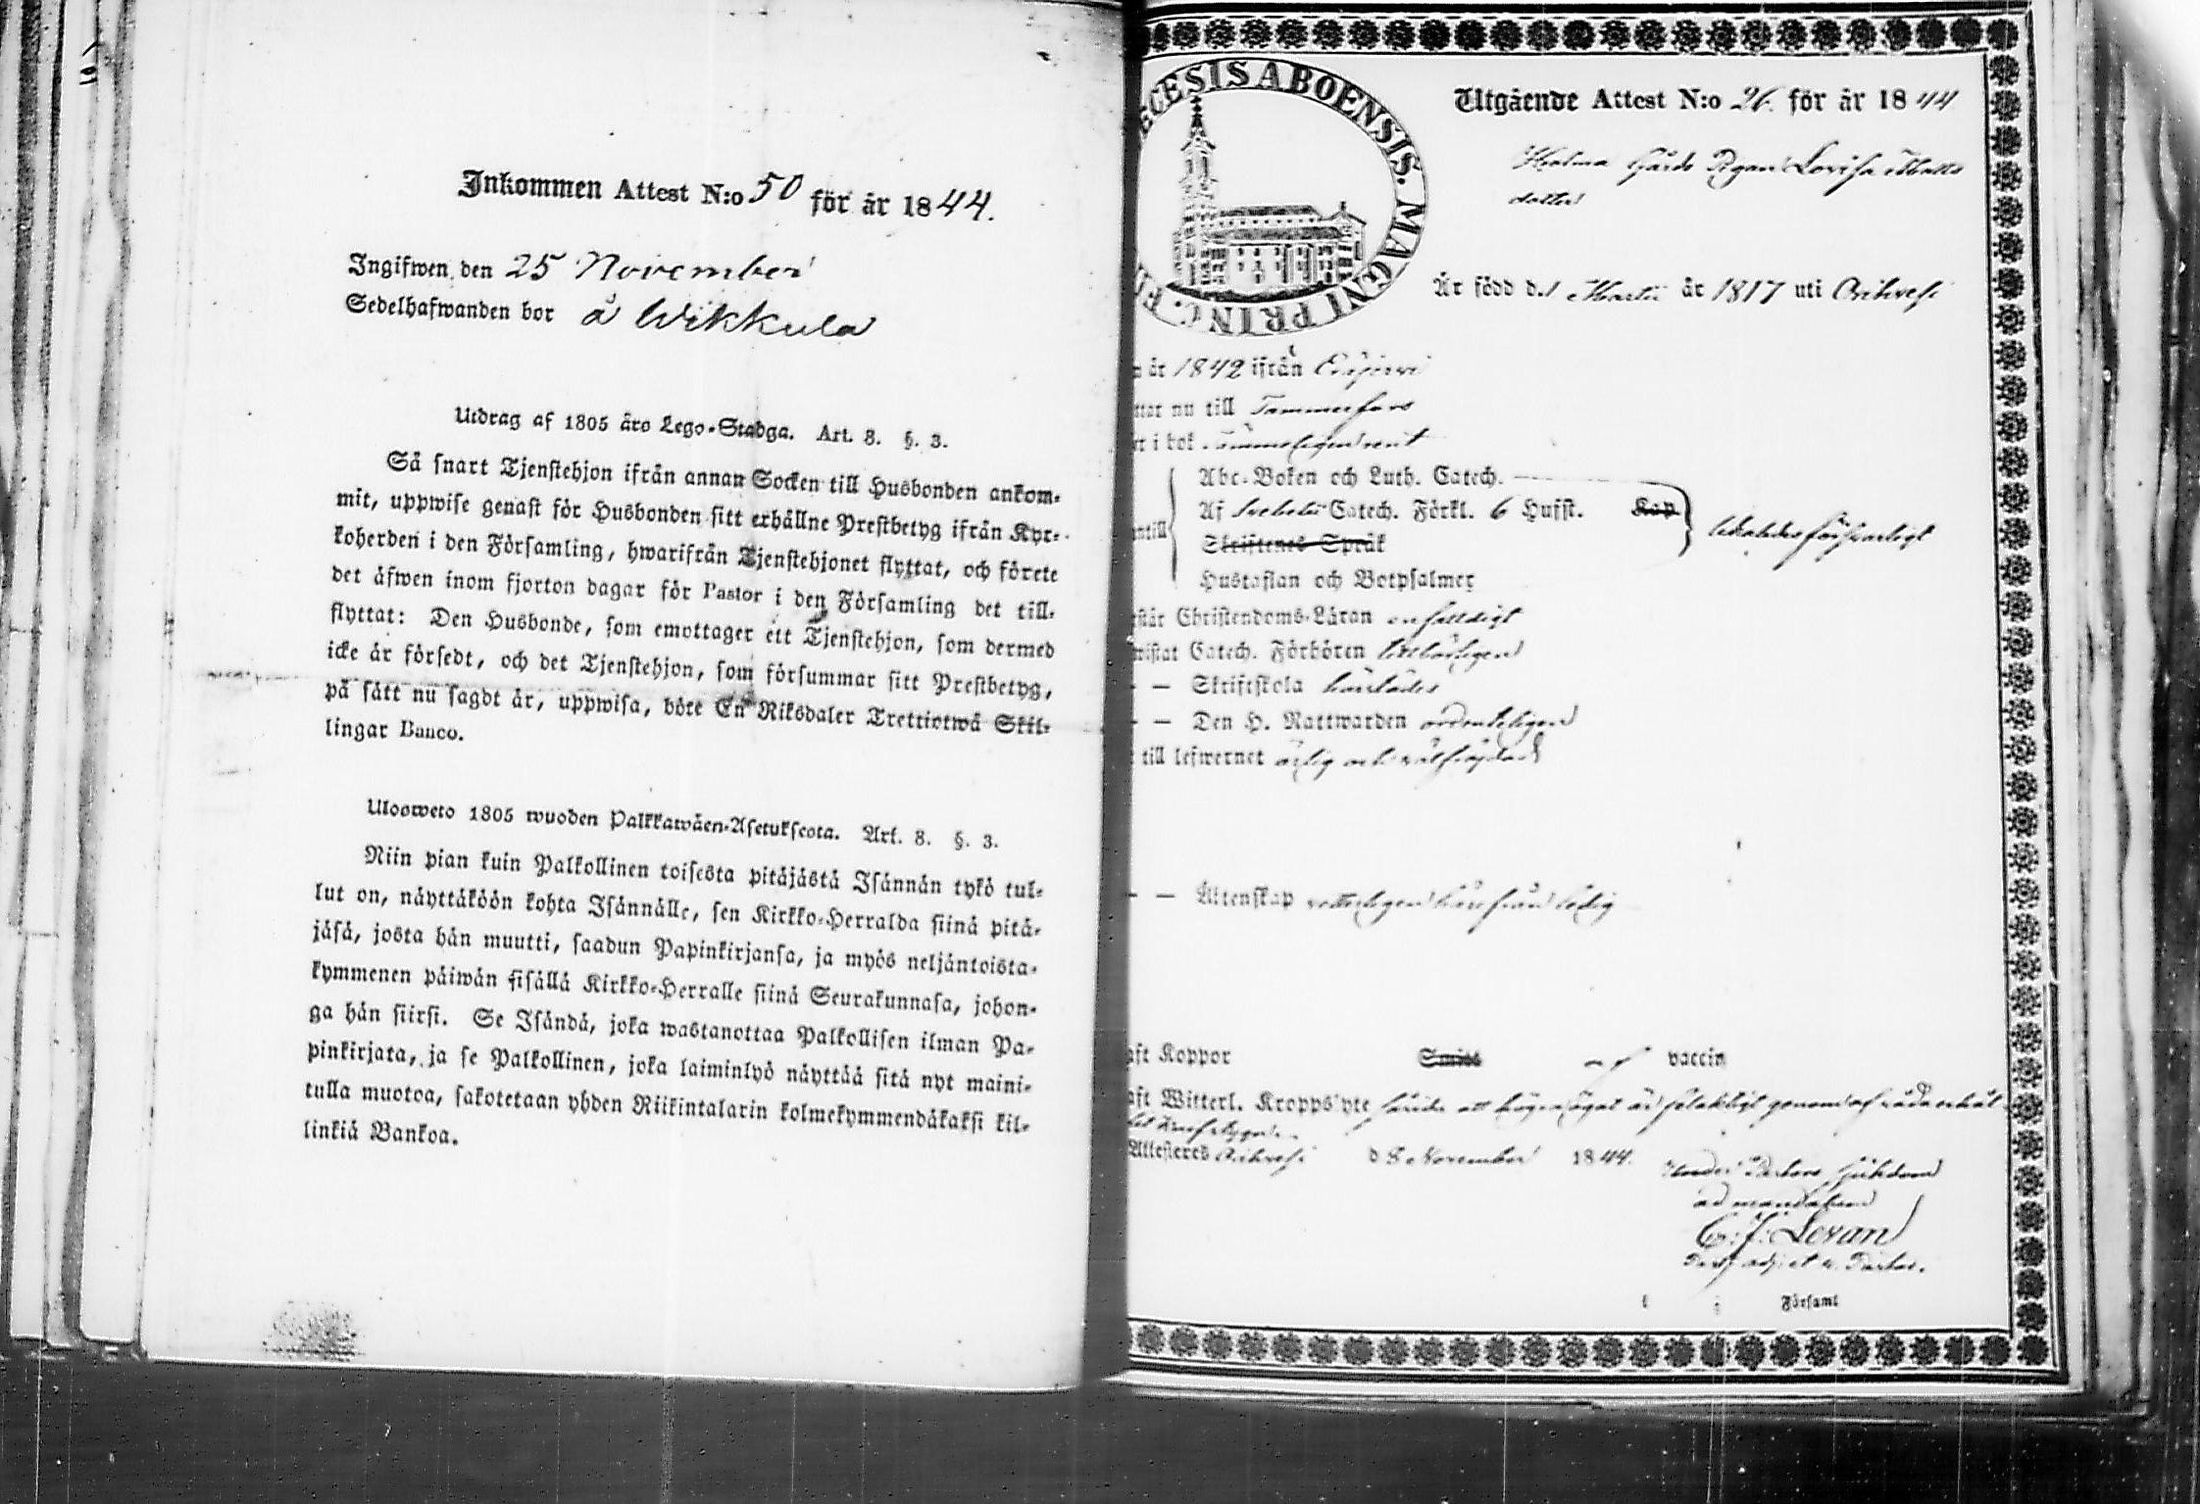 Inkommen Attest N:o 50 för år 1844.
Ingifwen den 25 November
Sedelhafwanden bor å Wikkula
Utdrag af 1805 års Lego-Stadga. Art. 8. §. 3.
Så snart Tjenstehjon ifrån annan Socken till Husbonden ankom-
mit, uppwise genast för Husbonden sitt erhållne Prestbetyg ifrån Kyr-
koherden i den Församling, hwarifrån Tjenstehjonet flyttat, och förete
det äfwen inom fjorton dagar för Pastor i den Församling det till-
flyttat: Den Husbonde, som emottager ett Tjenstehjon, som dermed
icke är försedt, och det Tjenstehjon, som försummar sitt Prestbetyg,
på sätt nu sagdt är, uppwisa, böte En Riksdaler Trettiotwå Skil-
lingar Banco.
Ulosweto 1805 wuoden Palkkawäen-Asetuksesta. Art. 8. §. 3.
Niin pian kuin Palkollinen toisesta pitäjästä Isännän tykö tul-
lut on, näyttäköön kohta Isännälle, sen Kirkko-Herralda siinä pitä-
jäsä, josta hän muutti, saadun Papinkirjansa, ja myös neljäntoista-
kymmenen päiwän sisällä Kirkko-Herralle siinä Seurakunnasa, johon-
ga hän siirsi. Se Isändä, joka wastanottaa Palkollisen ilman Pa-
pinkirjata, ja se Palkollinen, joka laiminlyö näyttää sitä nyt maini-
tulla muotoa, sakotetaan yhden Riikintalarin kolmekymmendäkaksi kil-
linkiä Bankoa.
ECESIS ABOENSIS. MAGNI PRINC. FI
Utgående Attest N:o 26. för år 1844
Gårds Pigan Lovisa Matts
dotter
Är född d. 1 Martii år 1817 uti Orihvesi
år 1842 ifrån
nu till Tammerfors
i bok
Abc-Boken och Luth. Catech.
Af Svebelii Catech. Förkl. 6 Hufst. Kap
Skriftenes Språk
Hustaflan och Botpsalmer
försvarligt
Christendoms-Läran enfaldigt
Catech. Förhören
— — Skriftskola
— — Den H. Nattwarden ordenteligen
till lefwernet ärlig och
— — Äktenskap härifrån ledig
aft Koppor Smitt vaccin
aft Witterl. Kroppslyte
Attesteres Orihvesi d 8 November 1844.
ad mandatum
Församl